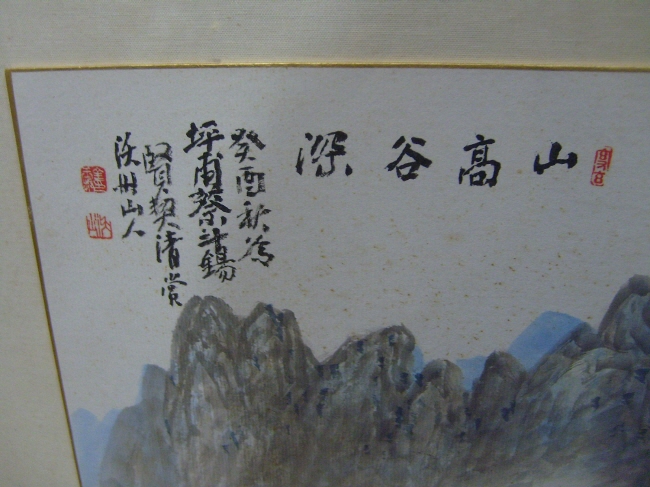 山高谷深
癸酉秋為
坪甫蔡斗錫
賢契清賞
沃州山人